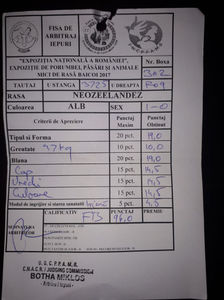 FISA DE
ARBITRAJ
IEPURI
"EXPOZIȚIA NAȚIONALĂ A ROMÂNIEI",
EXPOZIȚIE DE PORUMBEI, PĂSĂRI ȘI ANIMALE
MICI DE RASĂ BAICOI 2017
Nr. Boxa
TATUAJ
USTANGA
UDREAPTA
RO9
RASA
NEOZEELANDEZ
Culoarea
ALB
SEX
1-0
Criterii de Apreciere
Punctaj Maxim
Punctaj Obtinut
Tipul si Forma
20 pct.
19,0
Greutate
20 pct.
Blana
20 pct.
19,0
Cap
15 pct.
14,5
15 pct.
14,5
Culoare
5 pct.
Modul de ingrijire si starea sanatatii
5 pct.
CALIFICATIV
PUNCTAJ
96,0
U.S.C.P.P.A.M.R.
C.N.A.C.R./JUDGING COMMISSION
BOTHA MIKLOS